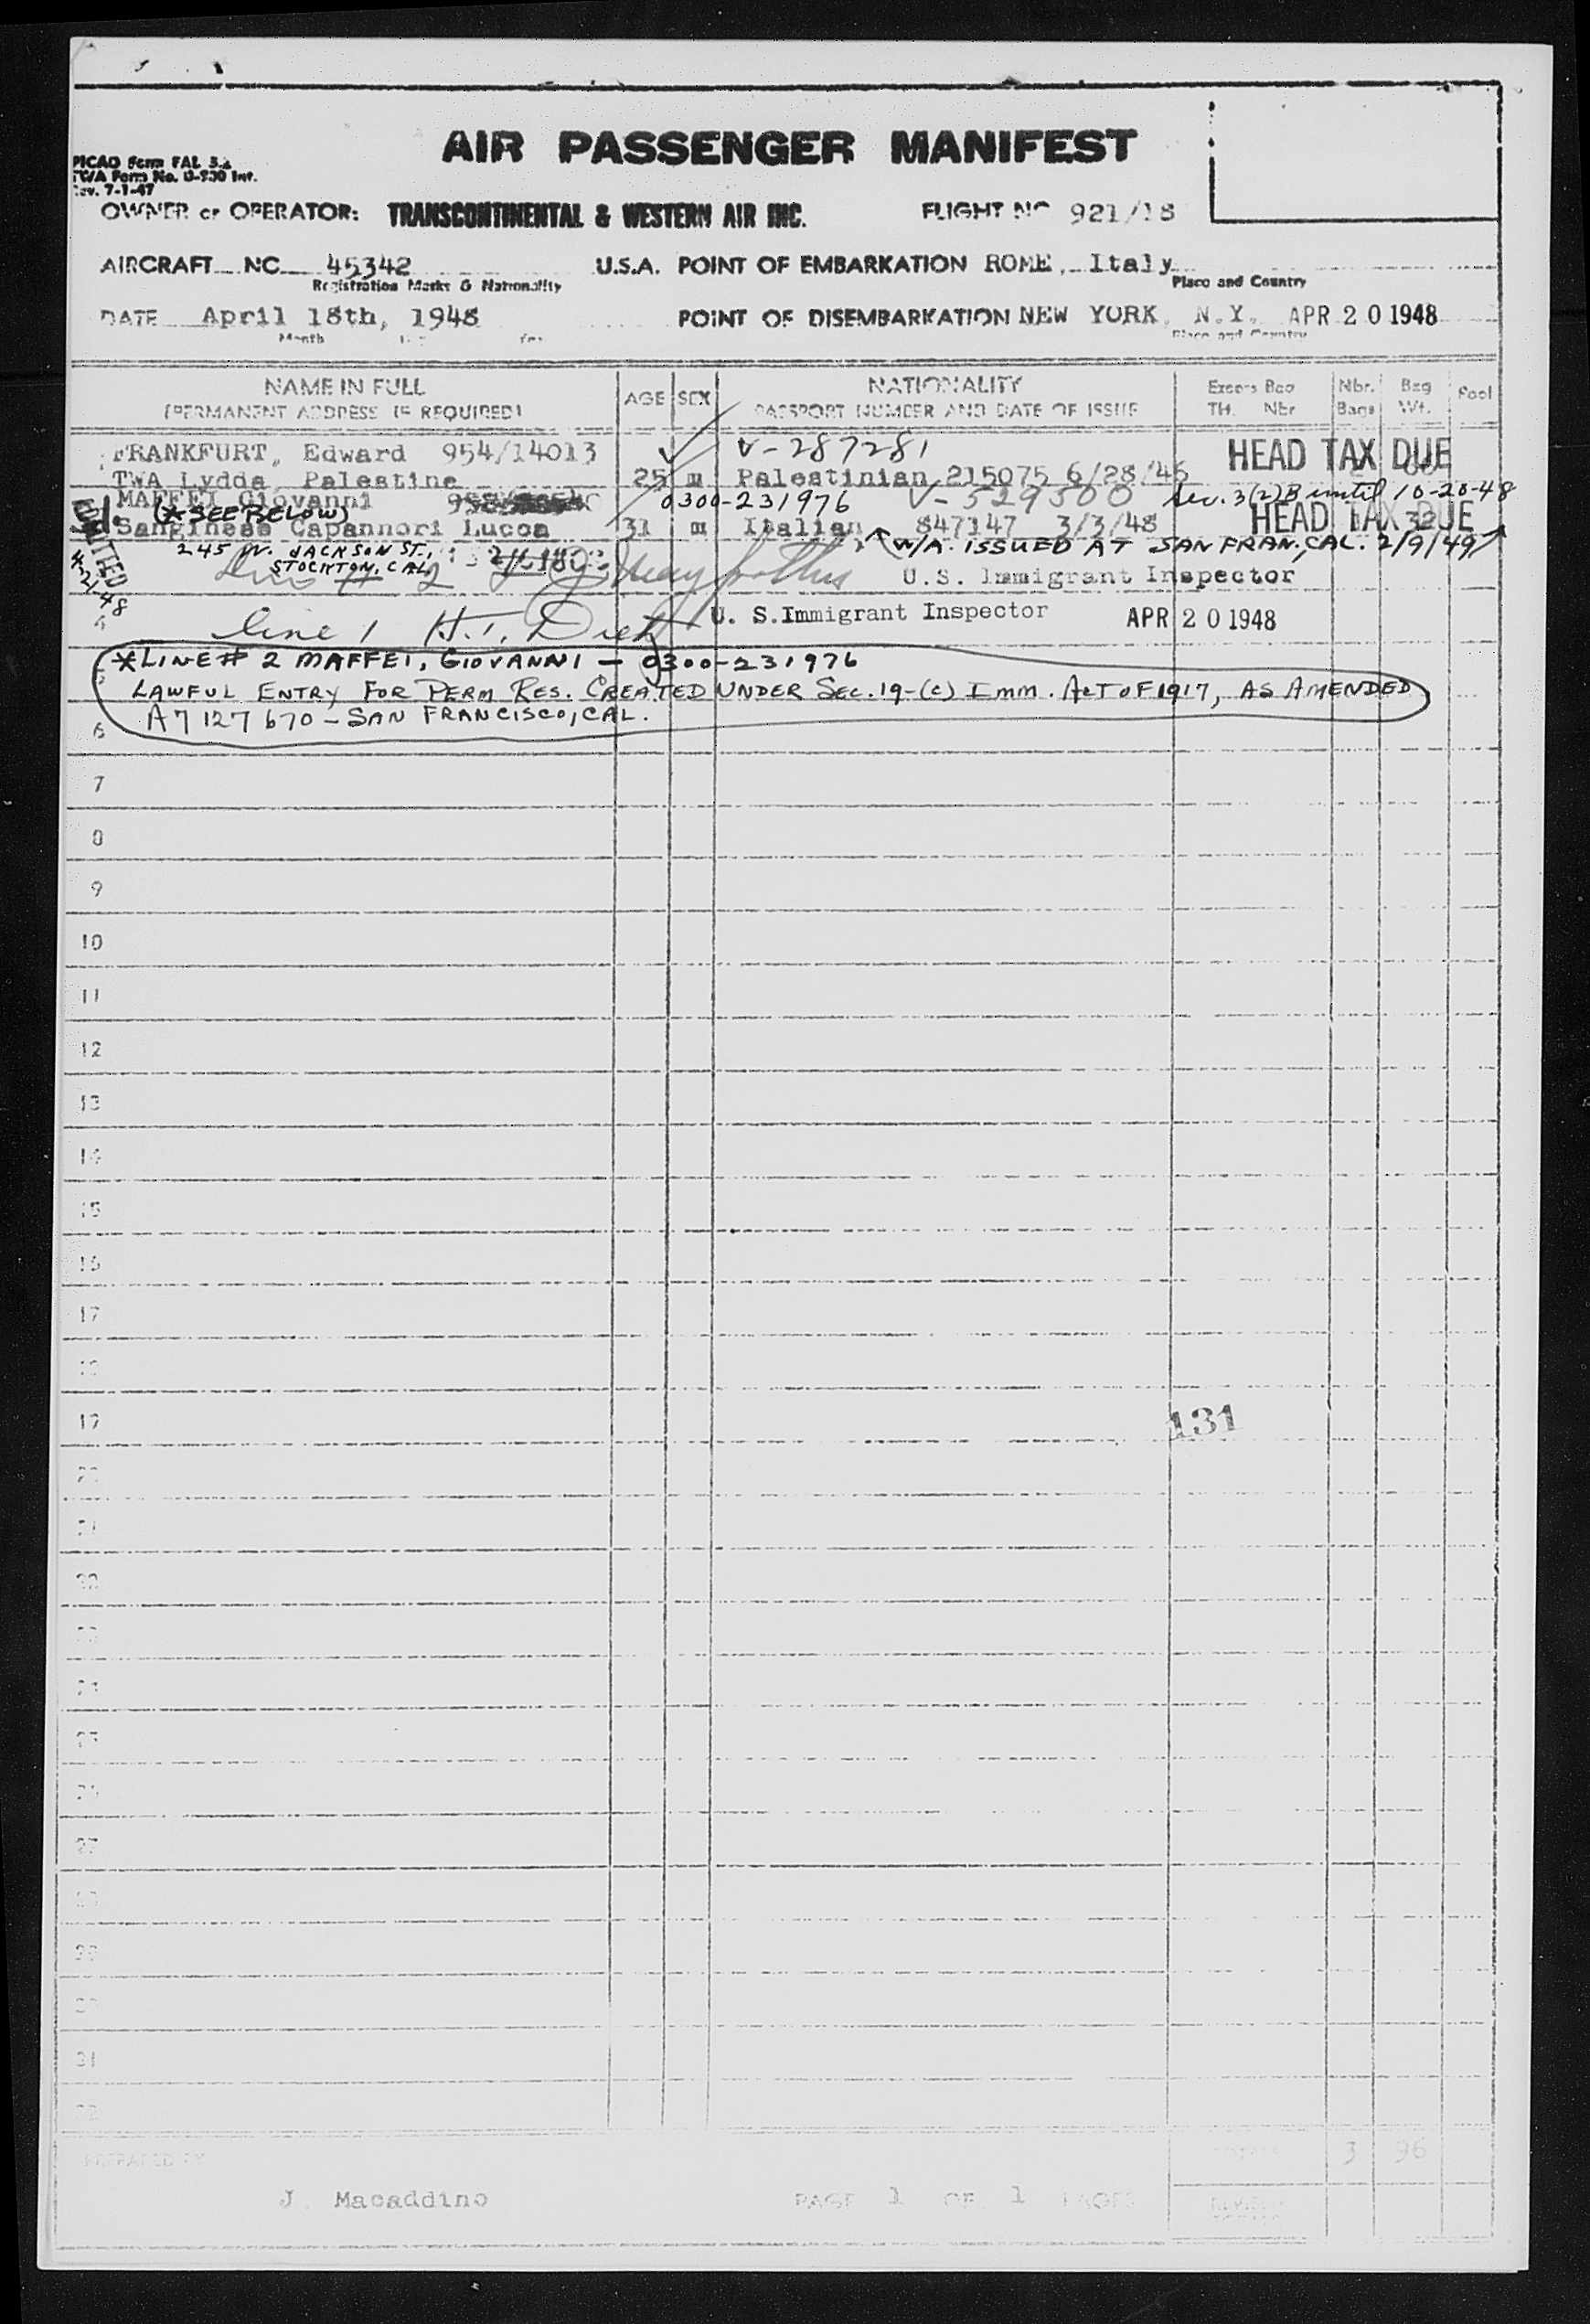 AIR PASSENGER MANIFEST
PICAO Form FAL 3.
TWA Form No. Int.
Rev. 7-1-47
OWNER or OPERATOR: TRANSCONTINENTAL & WESTERN AIR INC. FLIGHT NO 921/18
AIRCRAFT NC 45342 U.S.A. POINT OF EMBARKATION ROME, Italy
Registration Marks & Nationality Place and Country
DATE April 18th, 1948 POINT OF DISEMBARKATION NEW YORK, N.Y. APR 20 1948
Month Place and Country
NAME IN FULL AGE SEX NATIONALITY Excess Bag Nbr. Bag Pool
(PERMANENT ADDRESS IF REQUIRED) PASSPORT NUMBER AND DATE OF ISSUE Tkt. Nbr Bags Wt.
FRANKFURT, Edward 954/14013 V-287281 HEAD TAX DUE
TWA Lydda, Palestine 25 m Palestinian 215075 6/28/46
MAFFEI Giovanni 0300-231976 V-529500 Sec. 3(2)B until 10-20-48
(*SEE BELOW) HEAD TAX DUE
32
Capannori Lucca 31 m Italian 847147 3/3/48
245 W. JACKSON ST., W/A. ISSUED AT SAN FRAN., CAL. 2/9/49
STOCKTON, CAL.
4-21-48
Line # 2 U.S. Immigrant Inspector
line 1 H.T. U. S. Immigrant Inspector APR 20 1948
*LINE # 2 MAFFEI, GIOVANNI - 0300-231976
LAWFUL ENTRY FOR PERM RES. CREATED UNDER SEC. 19-(c) IMM. ACT OF 1917, AS AMENDED
A7 127 670 - SAN FRANCISCO, CAL.
6
7
8
9
10
11
12
13
14
15
16
17
18
19
131
20
21
22
23
24
25
26
27
28
29
30
31
32
PREPARED BY 3 96
J. Macaddino PAGE 1 OF 1 PAGES